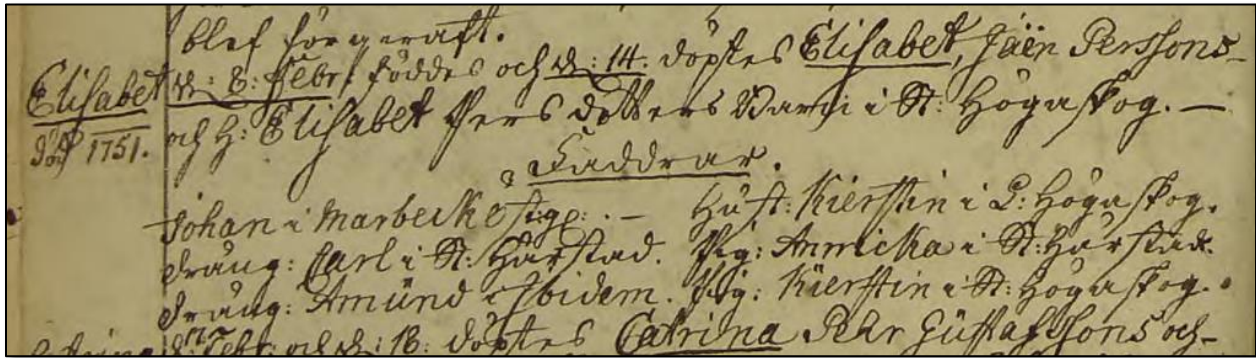 blef för
Elisabet d: 8: Febr: föddes och d: 14. döptes Elisabet, Jaen Perssons
död 1751. och H: Elisabet Pers Dotters Barn i St: Högaskog. —
Faddrar.
Johan i Marbecks — Hust: Kierstin i L: Högaskog.
Dräng: Carl i St: Harstad. Pig: Annicka i St: Harstad.
Dräng: Amund ibidem. Pig: Kierstin i St: Högaskog.
Febr: och d: 18: döptes Catrina Pehr Gustafssons och